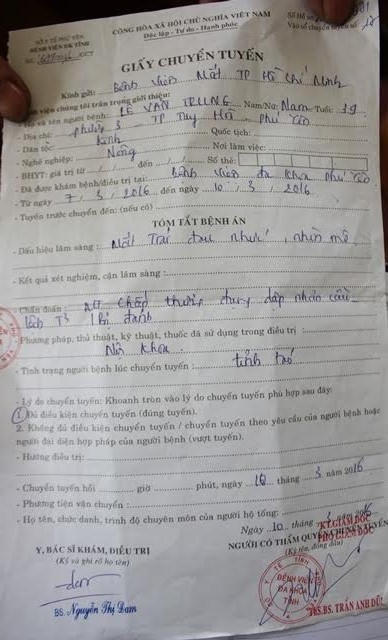 SỞ Y TẾ PHÚ YÊN
BỆNH VIỆN ĐK TỈNH
CỘNG HÒA XÃ HỘI CHỦ NGHĨA VIỆT NAM
Độc lập - Tự do - Hạnh phúc
Số Hồ sơ
Vào sổ chuyển tuyến số
GIẤY CHUYỂN TUYẾN
Kính gửi: Bệnh Viện Mắt TP Hồ Chí Minh
Bệnh viện chúng tôi trân trọng giới thiệu:
- Họ và tên người bệnh: LÊ VĂN TRUNG Nam/Nữ: Nam Tuổi: 19
- Địa chỉ: phường 3 - TP Tuy Hòa - Phú Yên
- Dân tộc: Kinh Quốc tịch:
- Nghề nghiệp: Nông Nơi làm việc:
- BHYT: giá trị từ / đến / Số thẻ:
- Đã được khám bệnh/điều trị tại: Bệnh viện đa khoa Phú Yên
- Từ ngày 7 / 3 / 2016 đến ngày 10 / 3 / 2016
- Tuyến trước chuyển đến: (nếu có)
TÓM TẮT BỆNH ÁN
- Dấu hiệu lâm sàng: Mắt Trái đau nhức, nhìn mờ
- Kết quả xét nghiệm, cận lâm sàng:
- Chẩn đoán: chấn thương đụng dập nhãn cầu
bị đánh
- Phương pháp, thủ thuật, kỹ thuật, thuốc đã sử dụng trong điều trị:
Nội khoa
- Tình trạng người bệnh lúc chuyển tuyến: tỉnh táo
- Lý do chuyển tuyến: Khoanh tròn vào lý do chuyển tuyến phù hợp sau đây:
1. Đủ điều kiện chuyển tuyến (đúng tuyến).
2. Không đủ điều kiện chuyển tuyến / chuyển tuyến theo yêu cầu của người bệnh hoặc
người đại diện hợp pháp của người bệnh (vượt tuyến).
- Hướng điều trị:
- Chuyển tuyến hồi giờ phút, ngày 10 tháng 3 năm 2016
- Phương tiện vận chuyển:
- Họ tên, chức danh, trình độ chuyên môn của người hộ tống:
Ngày 10 tháng 3 năm 2016
Y, BÁC SĨ KHÁM, ĐIỀU TRỊ
(Ký và ghi rõ họ tên)
KT.GIÁM ĐỐC
PHÓ GIÁM ĐỐC
NGƯỜI CÓ THẨM QUYỀN CHUYỂN TUYẾN
(Ký tên, đóng dấu)
BỆNH VIỆN
ĐA KHOA
TỈNH
BS. Nguyễn Thị Đam
THS.BS. TRẦN ANH DŨ